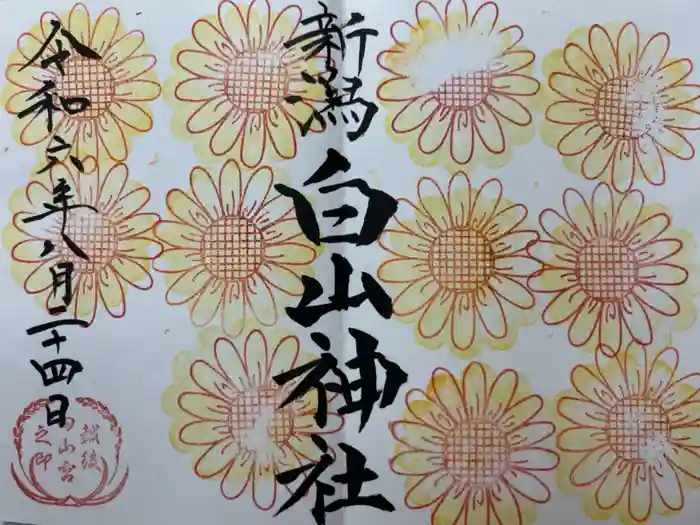 新潟
白山神社
令和六年八月二十四日
越後
白山宮
之印